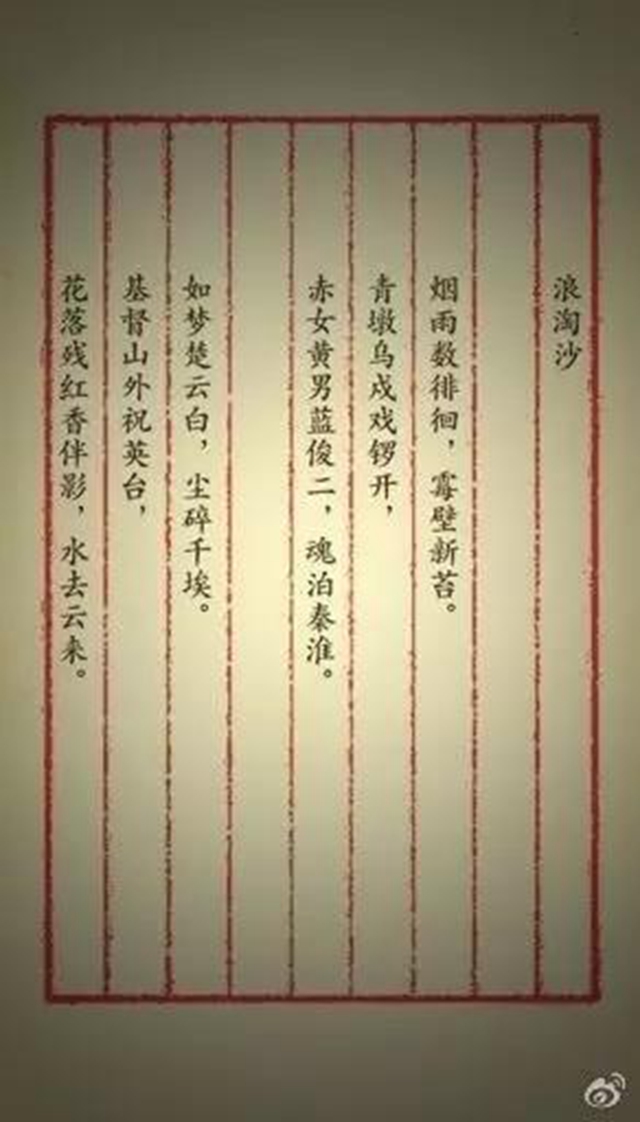 浪淘沙
烟雨数徘徊，霉壁新苔。
青墩乌戍戏锣开，
赤女黄男蓝俊二，魂泊秦淮。
如梦楚云白，尘碎千埃。
基督山外祝英台，
花落残红香伴影，水去云来。